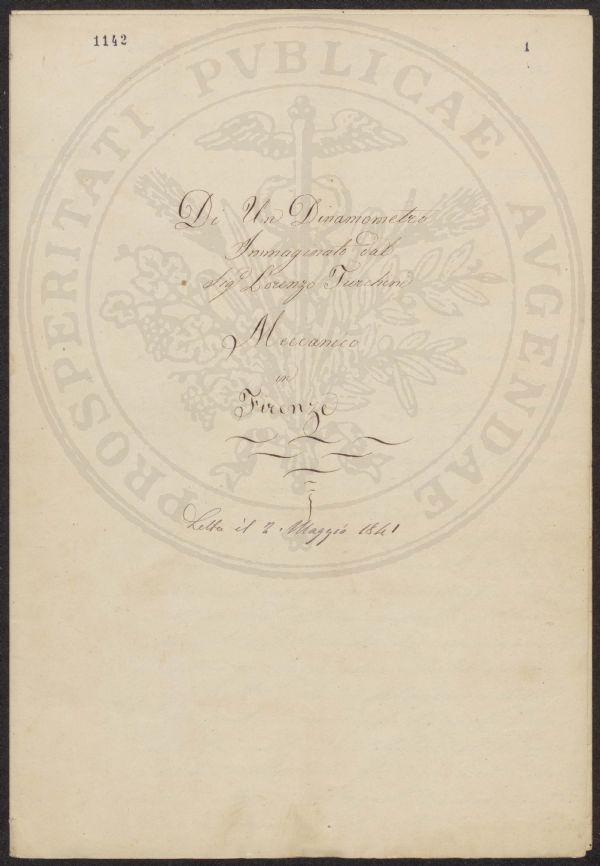 1142
1
PROSPERITATI PVBLICAE AVGENDAE
Di Un Dinamometro
Immaginato dal
Sigr Lorenzo Turchini
Meccanico
in
Firenze
Letta il 2. Maggio 1841